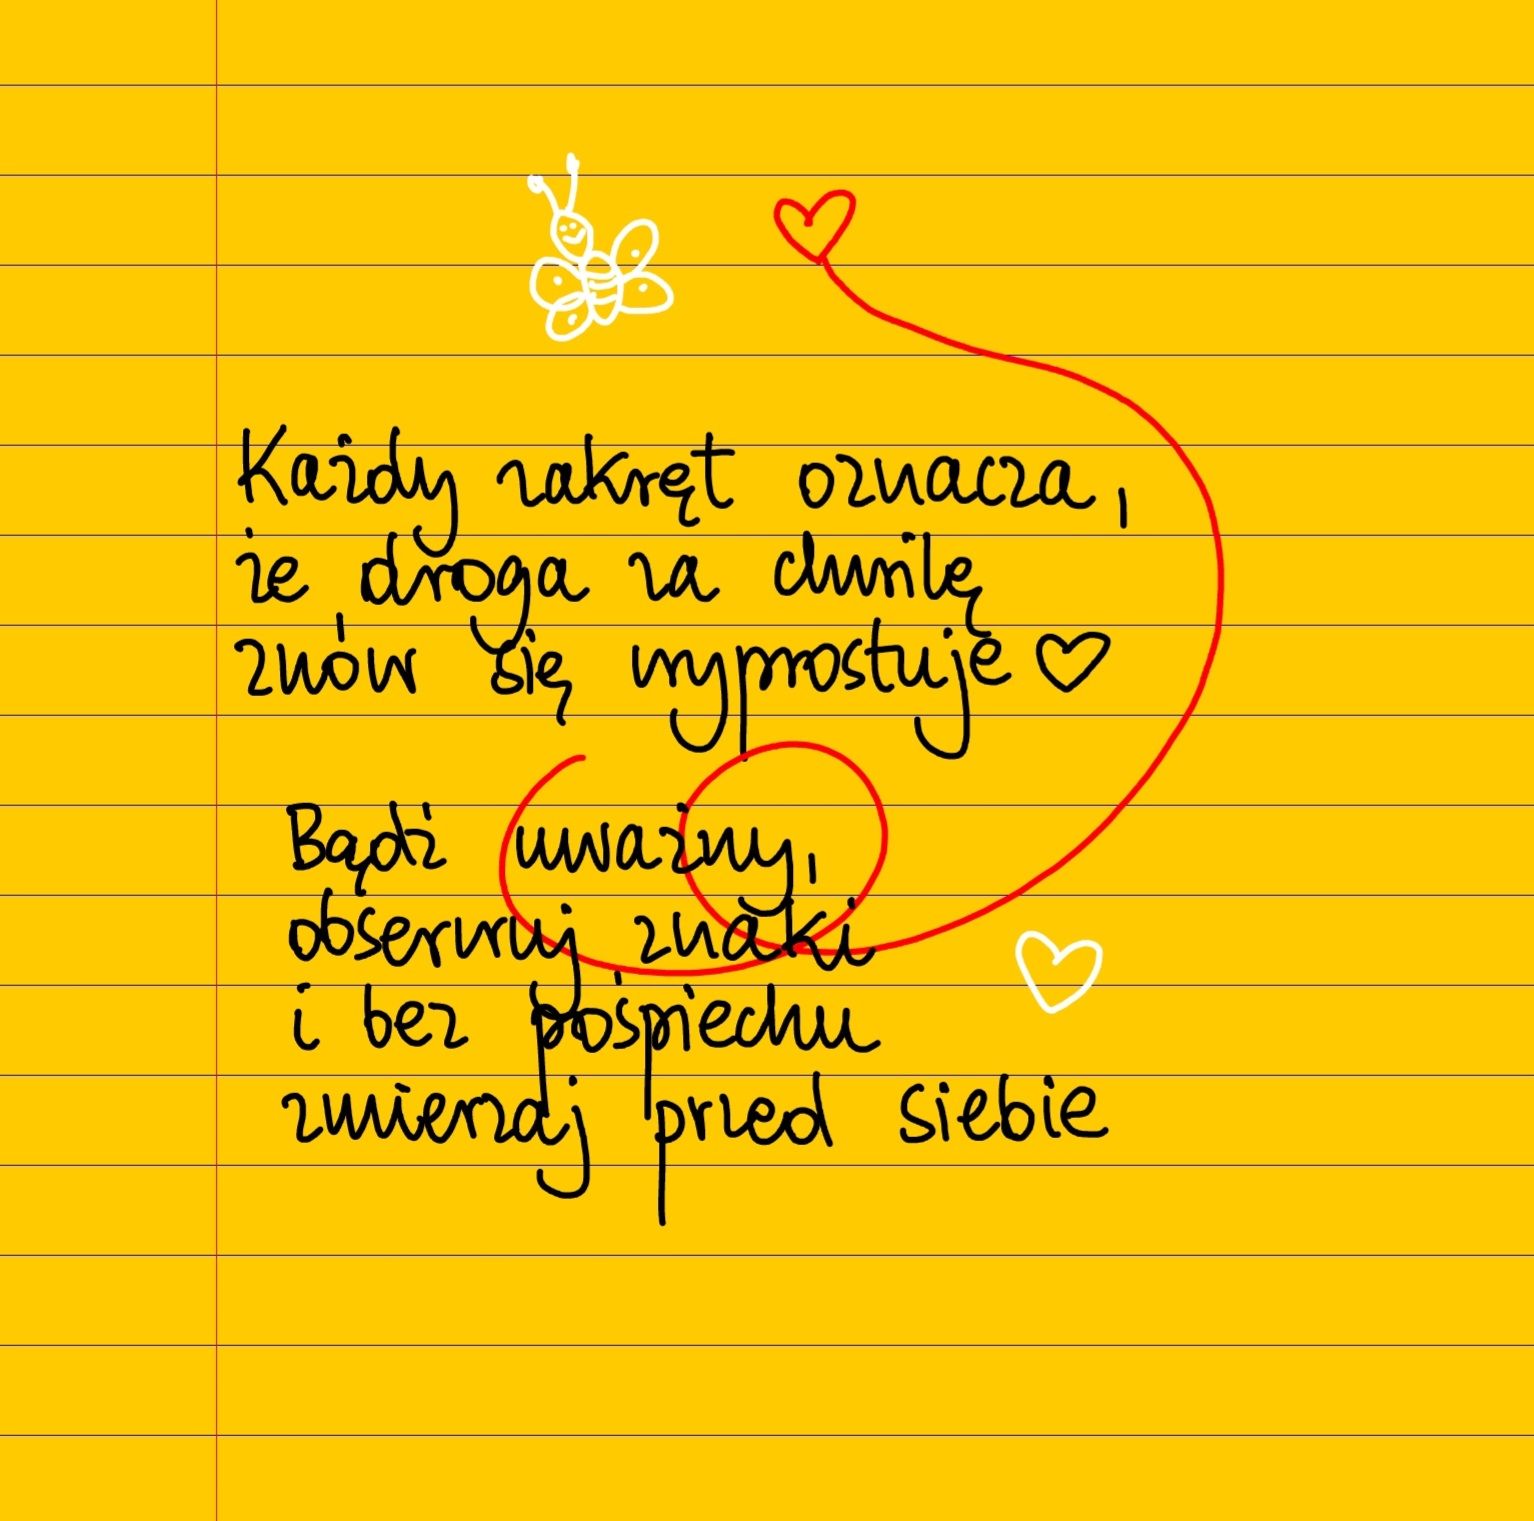 Każdy zakręt oznacza,
że droga za chwilę
znów się wyprostuje ♡
Bądź uważny,
obserwuj znaki
i bez pośpiechu
zmierzaj przed siebie